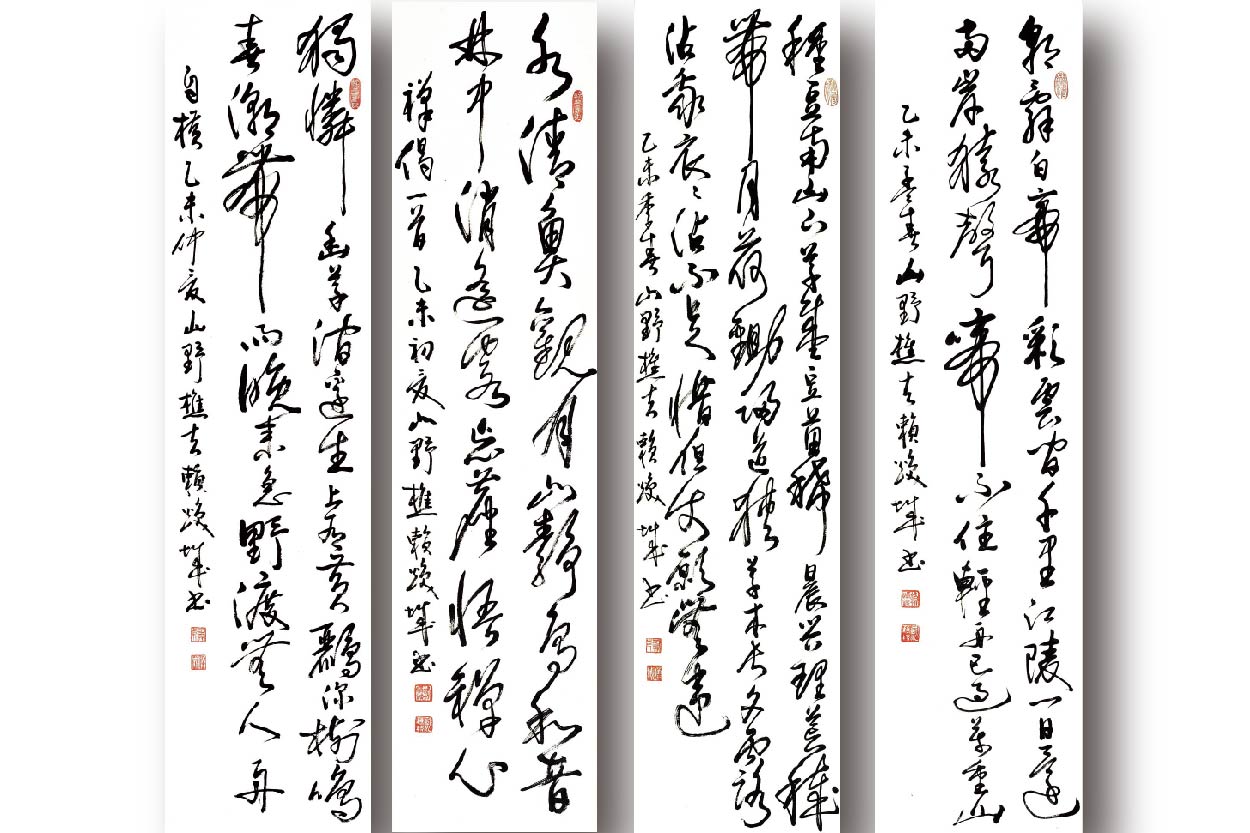 朝辭白帝彩雲間千里江陵一日還
兩岸猿聲啼不住輕舟已過萬重山
乙未孟春山野樵夫賴焕城书
種豆南山下草盛豆苗稀晨兴理荒穢
帶月荷鋤歸道狹草木长夕露
沾我衣々沾不足惜但使願無違
乙未季春山野樵夫賴焕城书
水清魚觀月山靜鳥和音
林中消遙客忘塵悟禪心
禅偈一首乙未初夏山野樵賴焕城书
獨憐幽草澗邊生上有黄鸝深樹鳴
春潮帶雨晚来急野渡無人舟
自横乙未仲夏山野樵夫賴焕城书